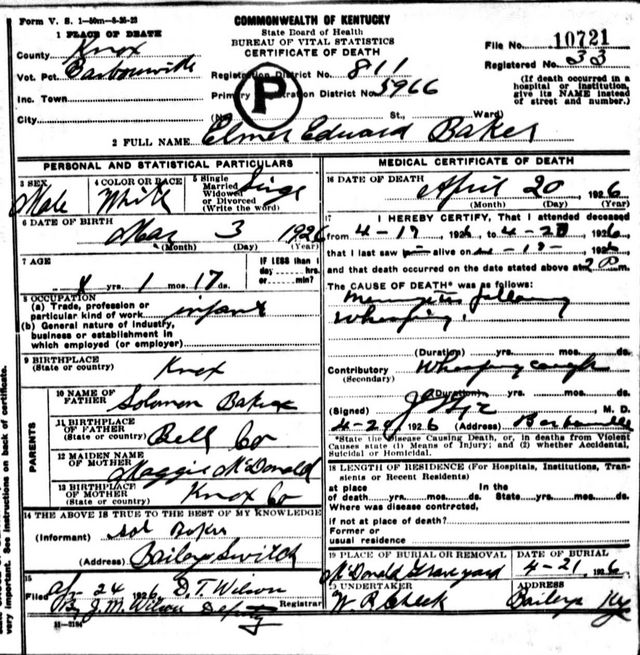 Form V. S. 1—50m—8-26-23
COMMONWEALTH OF KENTUCKY
State Board of Health
BUREAU OF VITAL STATISTICS
CERTIFICATE OF DEATH
1 PLACE OF DEATH
County Knox
Vot. Pct. Barbourville
Inc. Town
City
Registration District No. 811
Primary Registration District No. 5966
P
(No. St., Ward)
File No. 10721
Registered No. 33
(If death occurred in a hospital or institution, give its NAME instead of street and number.)
2 FULL NAME Elmer Edward Baker
PERSONAL AND STATISTICAL PARTICULARS
3 SEX Male
4 COLOR OR RACE White
5 Single Married Widowed or Divorced (Write the word) Singe
6 DATE OF BIRTH Mar 3 1926
(Month) (Day) (Year)
7 AGE
yrs. 1 mos. 17 ds.
IF LESS than 1 day hrs. or min.?
8 OCCUPATION
(a) Trade, profession or particular kind of work infant
(b) General nature of industry, business or establishment in which employed (or employer)
9 BIRTHPLACE (State or country) Knox
PARENTS
10 NAME OF FATHER Solomon Baker
11 BIRTHPLACE OF FATHER (State or country) Bell Co
12 MAIDEN NAME OF MOTHER Maggie McDonald
13 BIRTHPLACE OF MOTHER (State or country) Knox Co
14 THE ABOVE IS TRUE TO THE BEST OF MY KNOWLEDGE
(Informant) Sol Baker
(Address) Baileys Switch
15
Filed Apr 24 1926 D. T. Wilson
By J. M. Wilson Deputy Registrar
11—3184
MEDICAL CERTIFICATE OF DEATH
16 DATE OF DEATH April 20 1926
(Month) (Day) (Year)
17 I HEREBY CERTIFY, That I attended deceased
from 4-19 1926 to 4-20 1926
that I last saw alive on 1926
and that death occurred on the date stated above at m.
The CAUSE OF DEATH* was as follows:
Meningitis following
Whooping
(Duration) yrs. mos. ds.
Contributory Whooping cough
(Secondary)
(Duration) yrs. mos. ds.
(Signed) M. D.
4-24 1926 (Address) Barbourville
*State the Disease Causing Death, or, in deaths from Violent Causes state (1) Means of Injury; and (2) whether Accidental, Suicidal or Homicidal.
18 LENGTH OF RESIDENCE (For Hospitals, Institutions, Transients or Recent Residents)
at place of death yrs. mos. ds. In the State yrs. mos. ds.
Where was disease contrcted,
if not at place of death?
Former or usual residence
19 PLACE OF BURIAL OR REMOVAL McDonald Graveyard
DATE OF BURIAL 4-21 1926
20 UNDERTAKER W. R. Cheek
ADDRESS Baileys Ky
very important. See instructions on back of certificate.